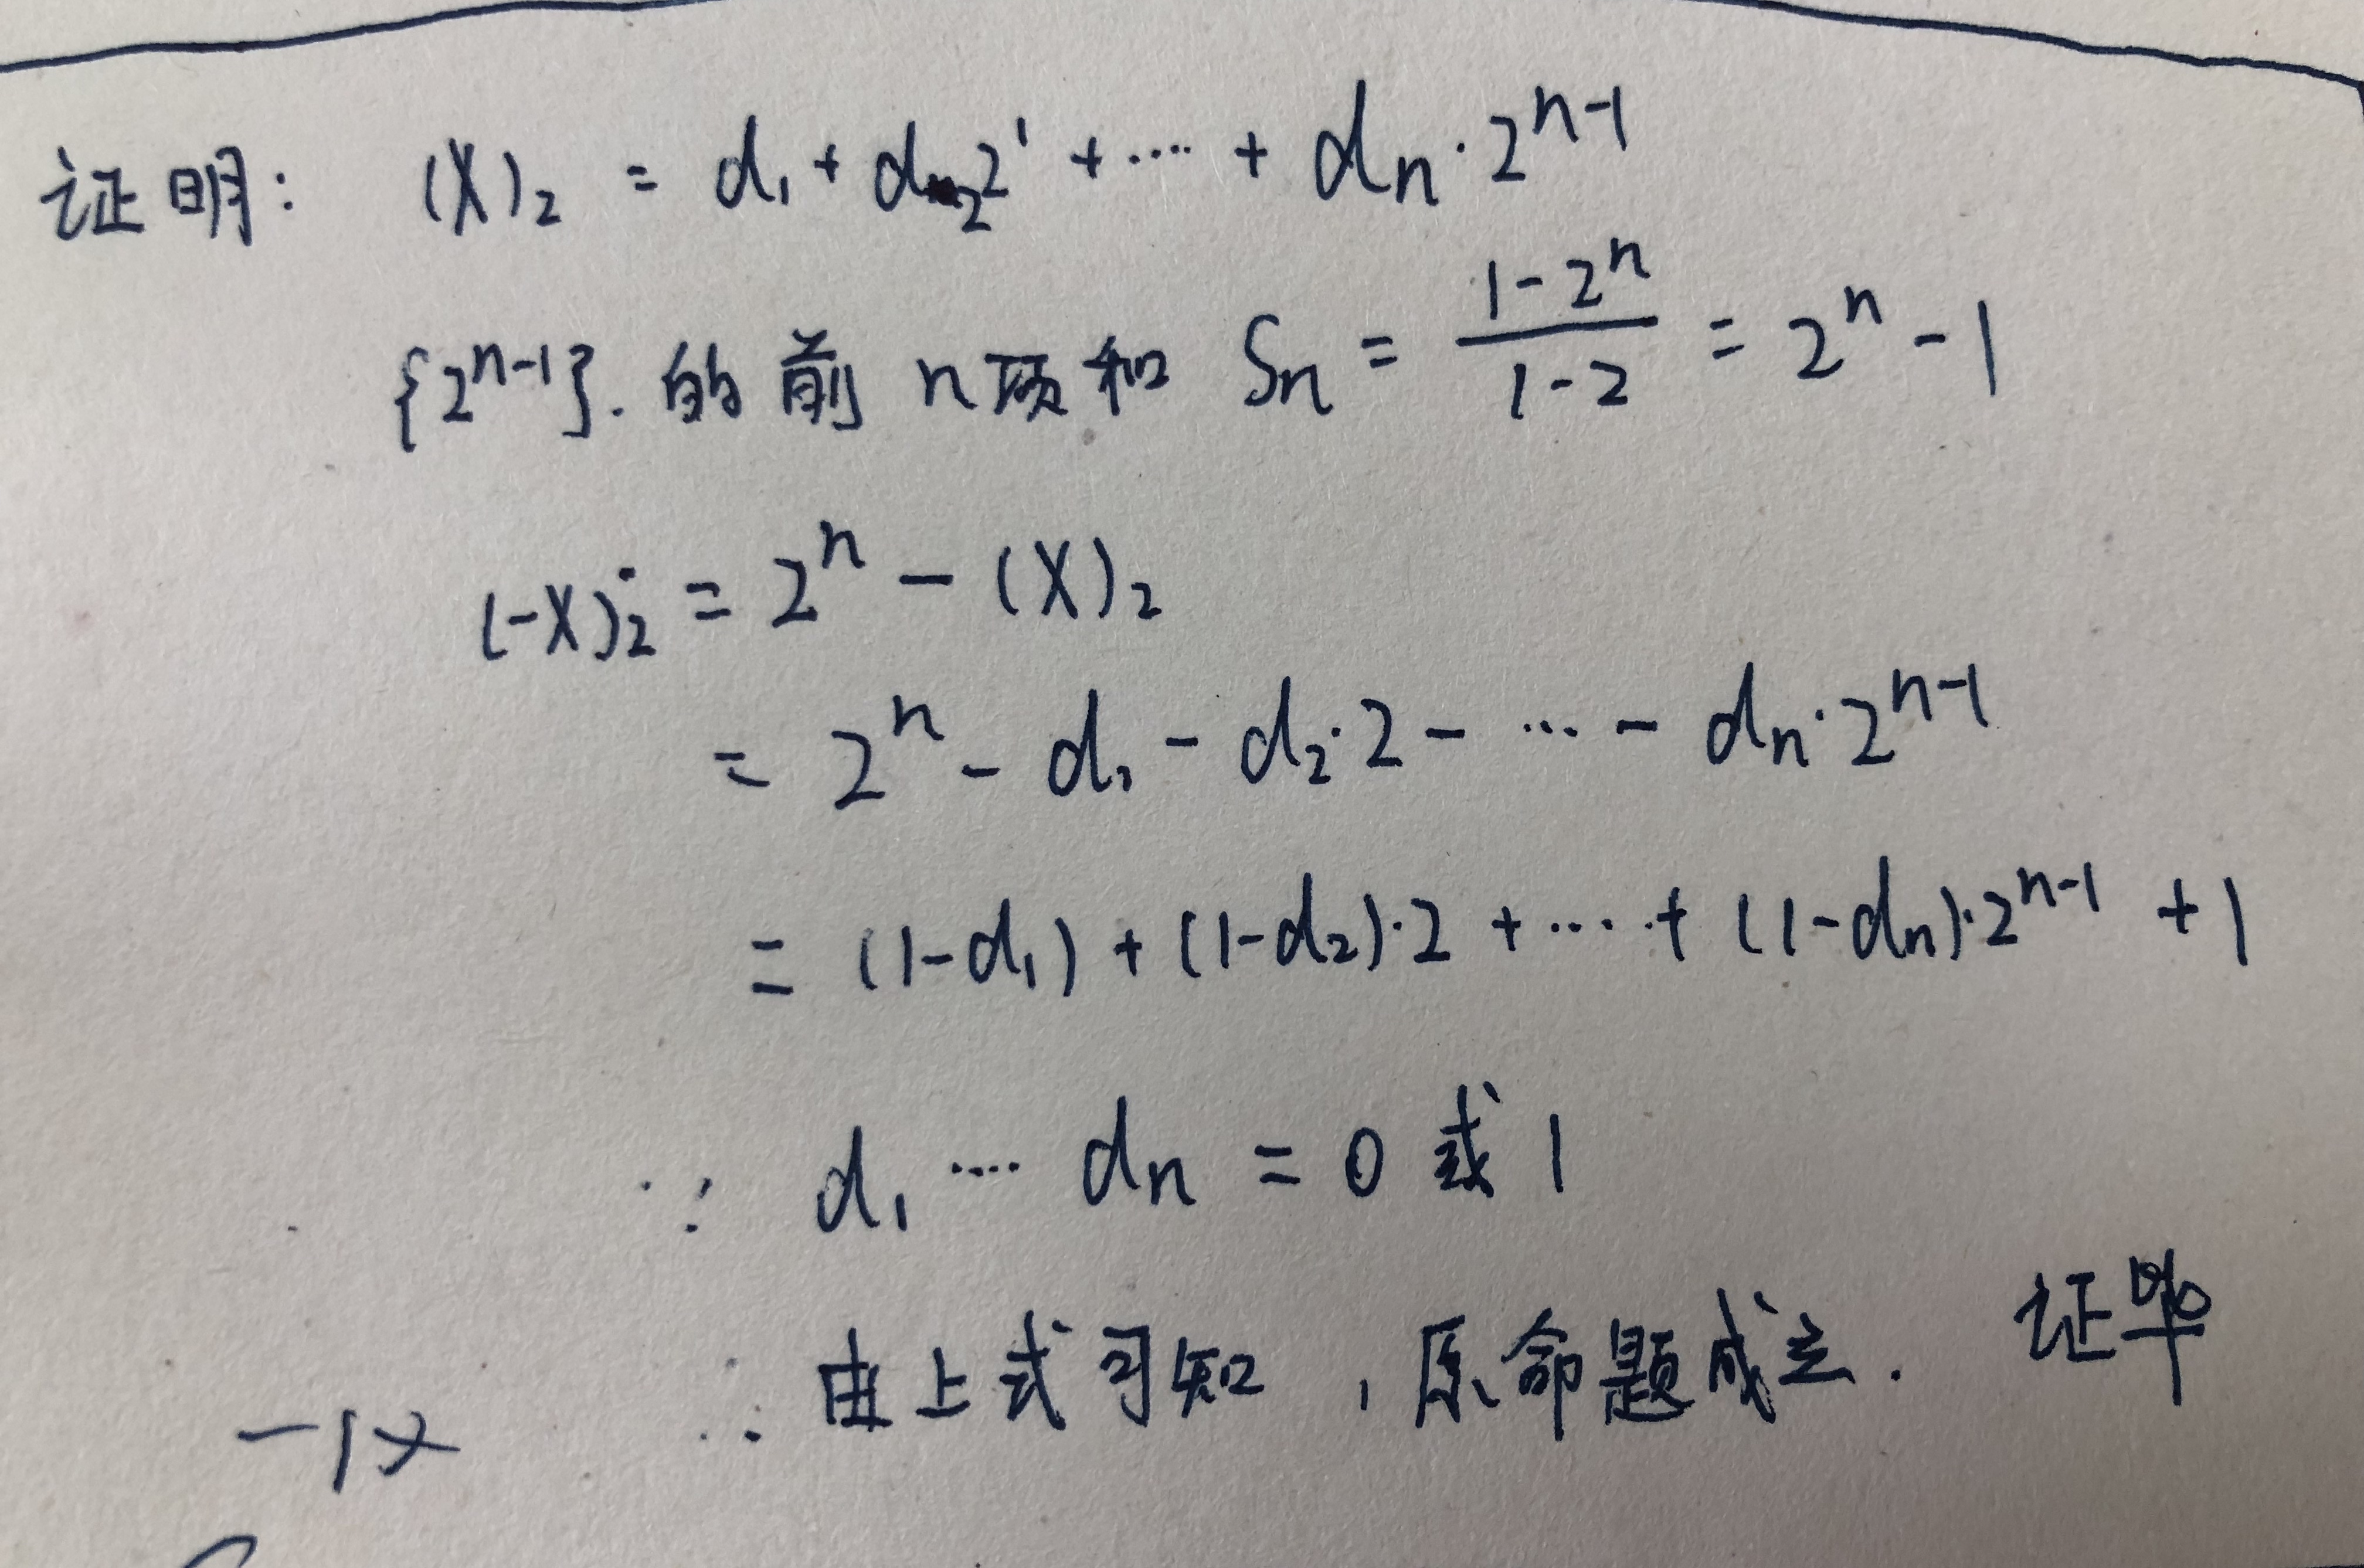 证明: (X)₂ = d₁ + d₂2¹ + ···· + dₙ·2ⁿ⁻¹
{2ⁿ⁻¹}. 的前n项和 Sₙ = (1-2ⁿ)/(1-2) = 2ⁿ - 1
(-X)₂ = 2ⁿ - (X)₂
= 2ⁿ - d₁ - d₂·2 - ··· - dₙ·2ⁿ⁻¹
= (1-d₁) + (1-d₂)·2 + ···· + (1-dₙ)·2ⁿ⁻¹ + 1
∵ d₁ ···· dₙ = 0 或 1
∴ 由上式可知, 原命题成立. 证毕